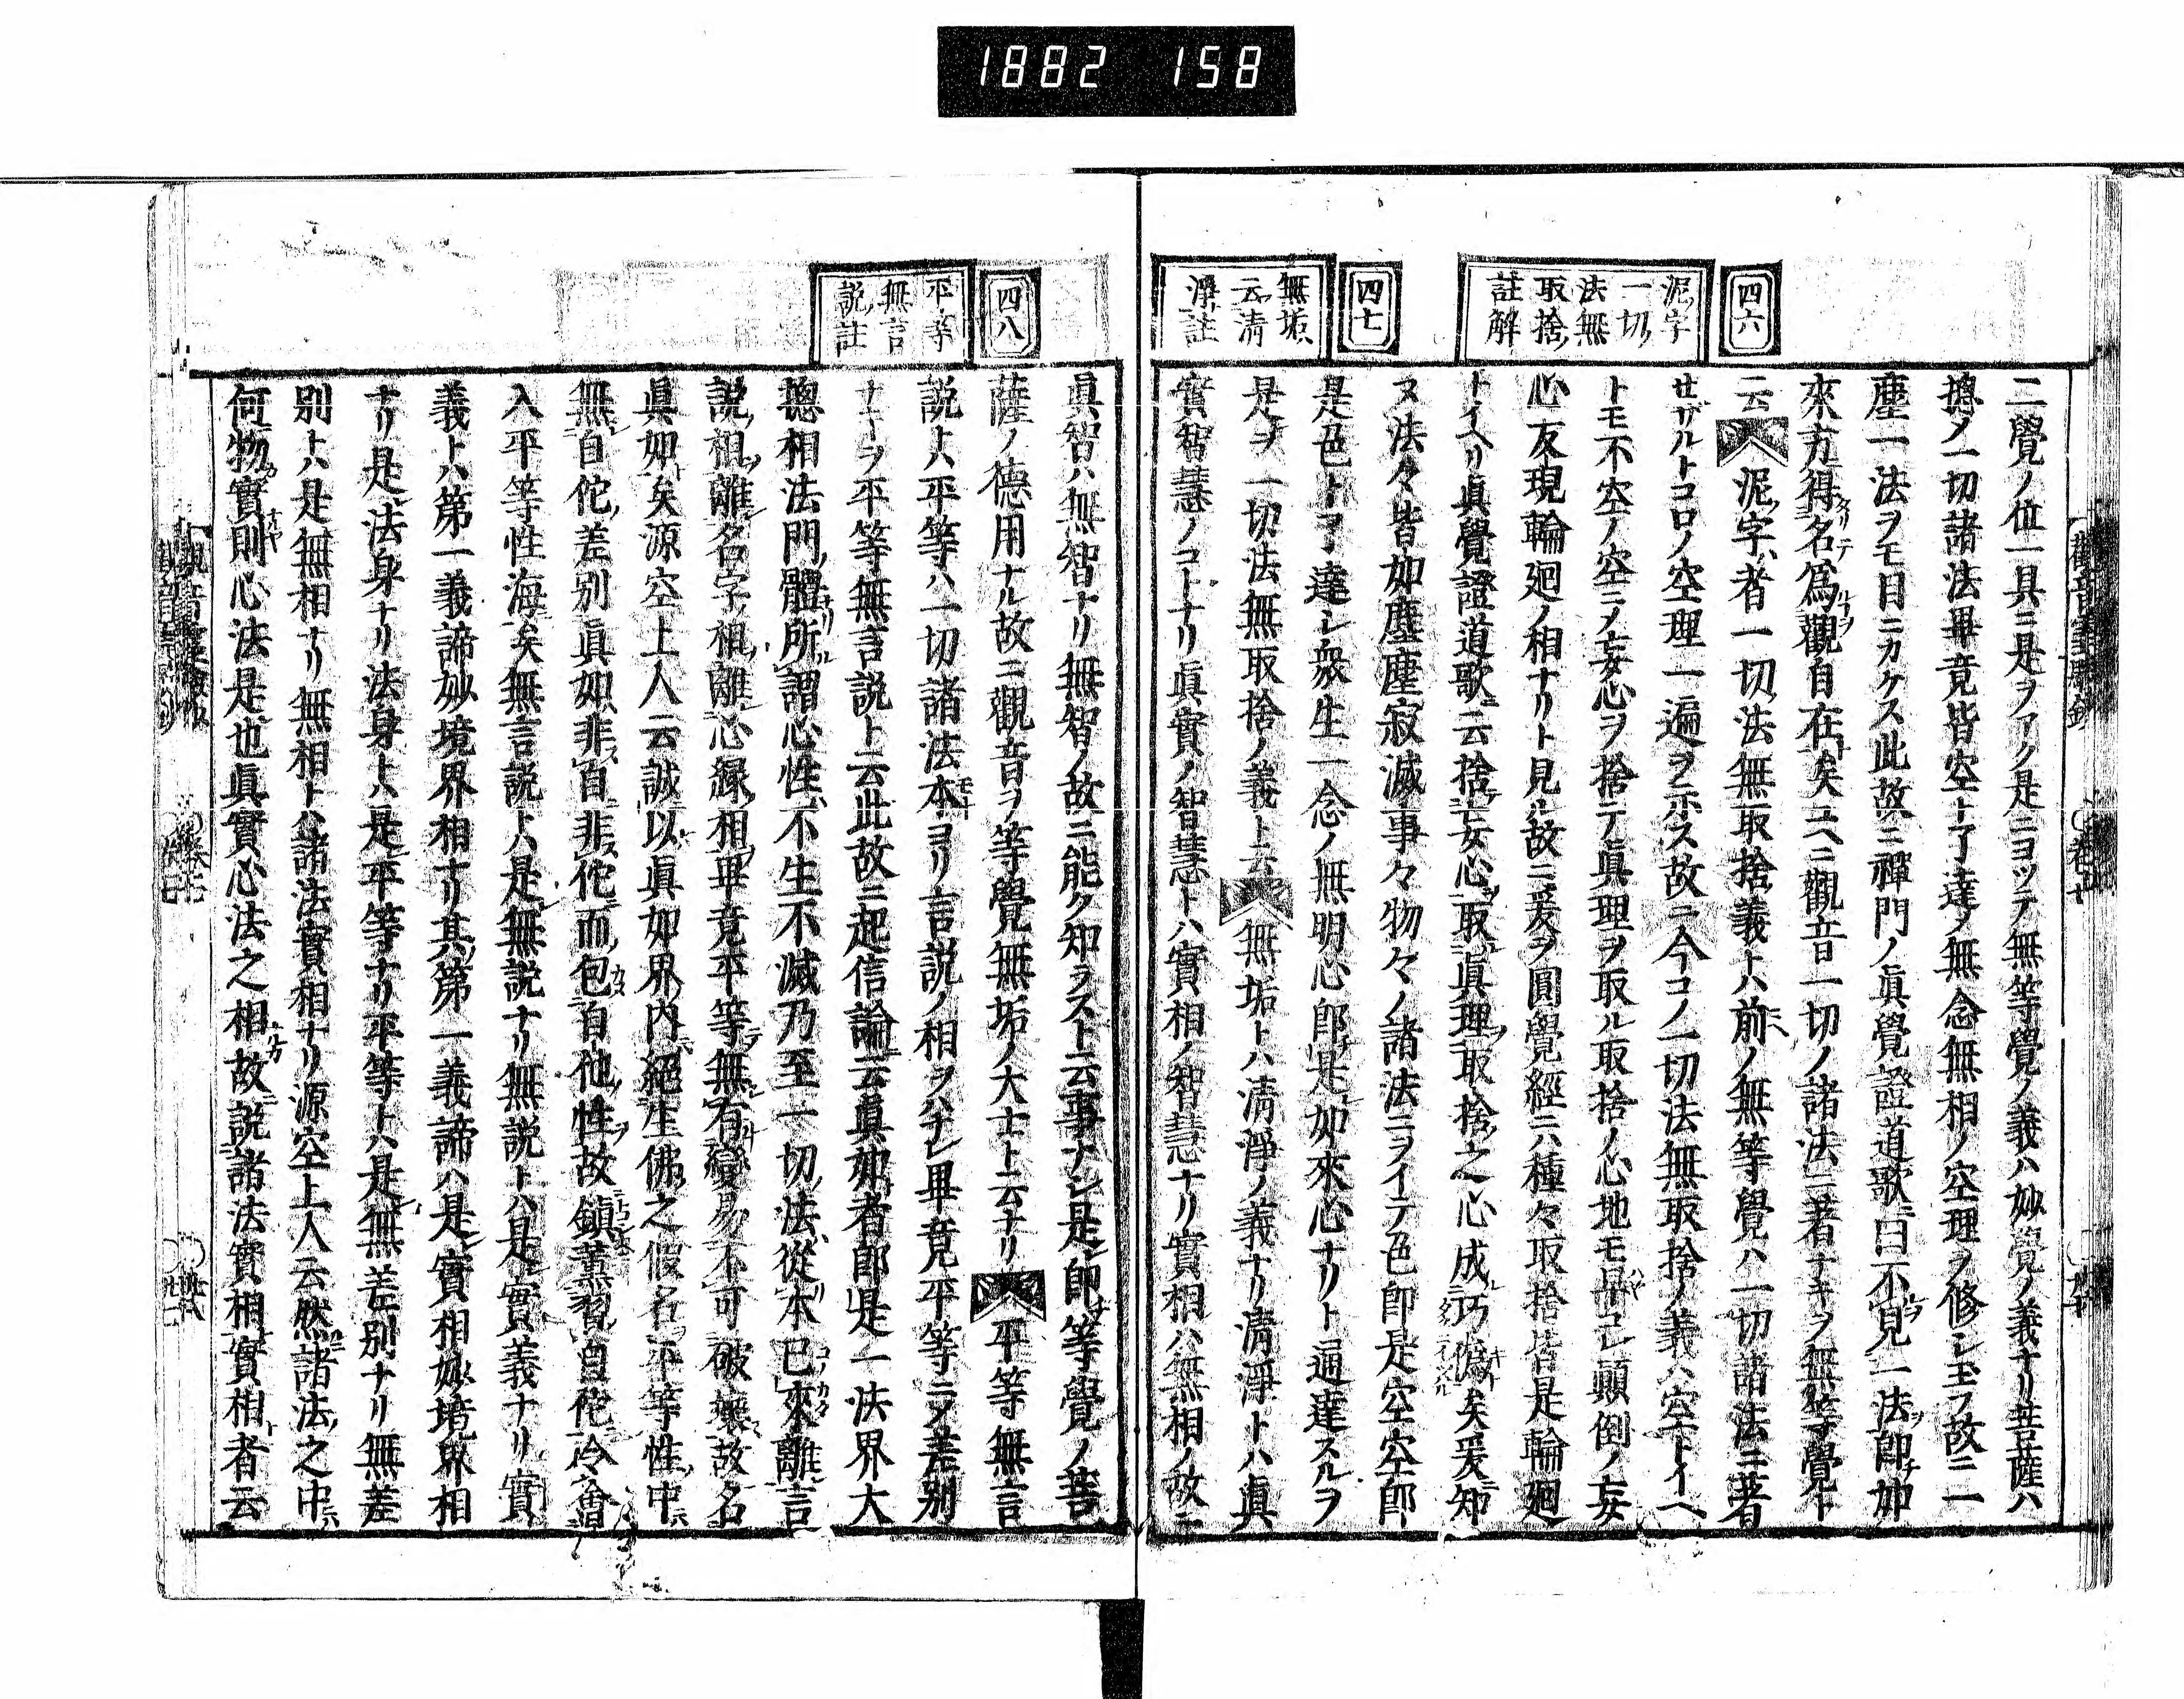 1882 158
四六
泥字
一切
法無
取捨
註解
四七
無垢
云清
淨註
二覺ノ位一具ニ是ヲアク是ニヨツテ無等覺ノ義ハ妙覺ノ義ナリ菩薩ハ
摠ノ一切諸法畢竟皆空ト了達ノ無念無相ノ空理ヲ修シ玉フ故ニ一
塵一法ヲモ目ニカケス此故ニ禪門ノ眞覺證道歌曰不見一法卽如
來方得名爲觀自在矣ユヘニ觀音一切ノ諸法ニ著ナキヲ無等覺ト
云泥字者一切法無取捨義トハ前ノ無等覺ハ一切諸法ニ著
せザルトコロノ空理一遍ヲ示ス故ニ今コノ一切法無取捨ノ義ハ空トイヘ
トモ不空ノ空ニノ妄心ヲ捨テ眞理ヲ取ル取捨ノ心地モコレ顚倒ノ妄
心友現輪廻ノ相ナリト見ル故ニ爰ヲ圓覺經ニハ種々取捨皆是輪廻
トイヘリ眞覺證道歌ニ云捨妄心取眞理取捨之心成巧僞矣爰知
ヌ法々皆如塵塵寂滅事々物々ノ諸法ニヲイテ色卽是空空卽
是色ト了達シ衆生一念ノ無明心卽是如來心ナリト通達スルヲ
是ヲ一切法無取捨ノ義ト云無垢トハ清淨ノ義ナリ淸淨トハ眞
實智慧ノコトナリ眞實ノ智慧トハ實相ノ智慧ナリ實相ハ無相ノ故ニ
四八
平等
無言
説註
眞智ハ無智ナリ無智ノ故ニ能ク知ラスト云事ナシ是卽等覺ノ菩
薩ノ德用ナル故ニ觀音ヲ等覺無垢ノ大士ト云ナリ平等無言
説トハ平等ハ一切諸法本ヨリ言説ノ相ヲハナレ畢竟平等ニノ差別
ナキヲ平等無言説ト云此故ニ起信論云眞如者卽是一法界大
摠相法門體所謂心性不生不滅乃至一切法從本已來離言
説相離名字相離心緣相畢竟平等無有變易不可破壞故名
眞如矣源空上人云誠以眞如界內絕生佛之假名平等性中
無自佗差別眞如非自非佗而包自他性故鎭薰習自佗冷會
入平等性海矣無言説トハ是無説ナリ無説トハ是實義ナリ實
義トハ第一義諦妙境界相ナリ其第一義諦ハ是實相妙境界相
ナリ是法身ナリ法身トハ是平等ナリ平等トハ是無差別ナリ無差
別トハ是無相ナリ無相トハ諸法實相ナリ源空上人云然諸法之中
何物實則心法是也眞實心法之相故説諸法實相實相者云